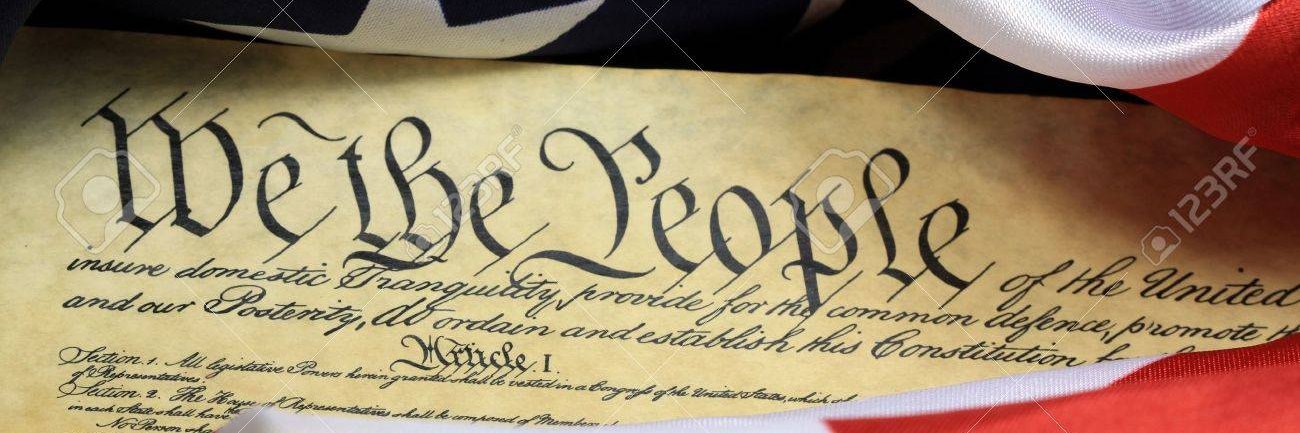 We the People of the United
insure domestic Tranquility, provide for the common defence, promote
and our Posterity, do ordain and establish this Constitution
Article I.
Section. 1. All legislative Powers herein granted shall be vested in a Congress of the United States, which
of Representatives.
Section. 2. The House of Representatives shall be composed of Members
in each State shall have the
No Person
123RF
123RF